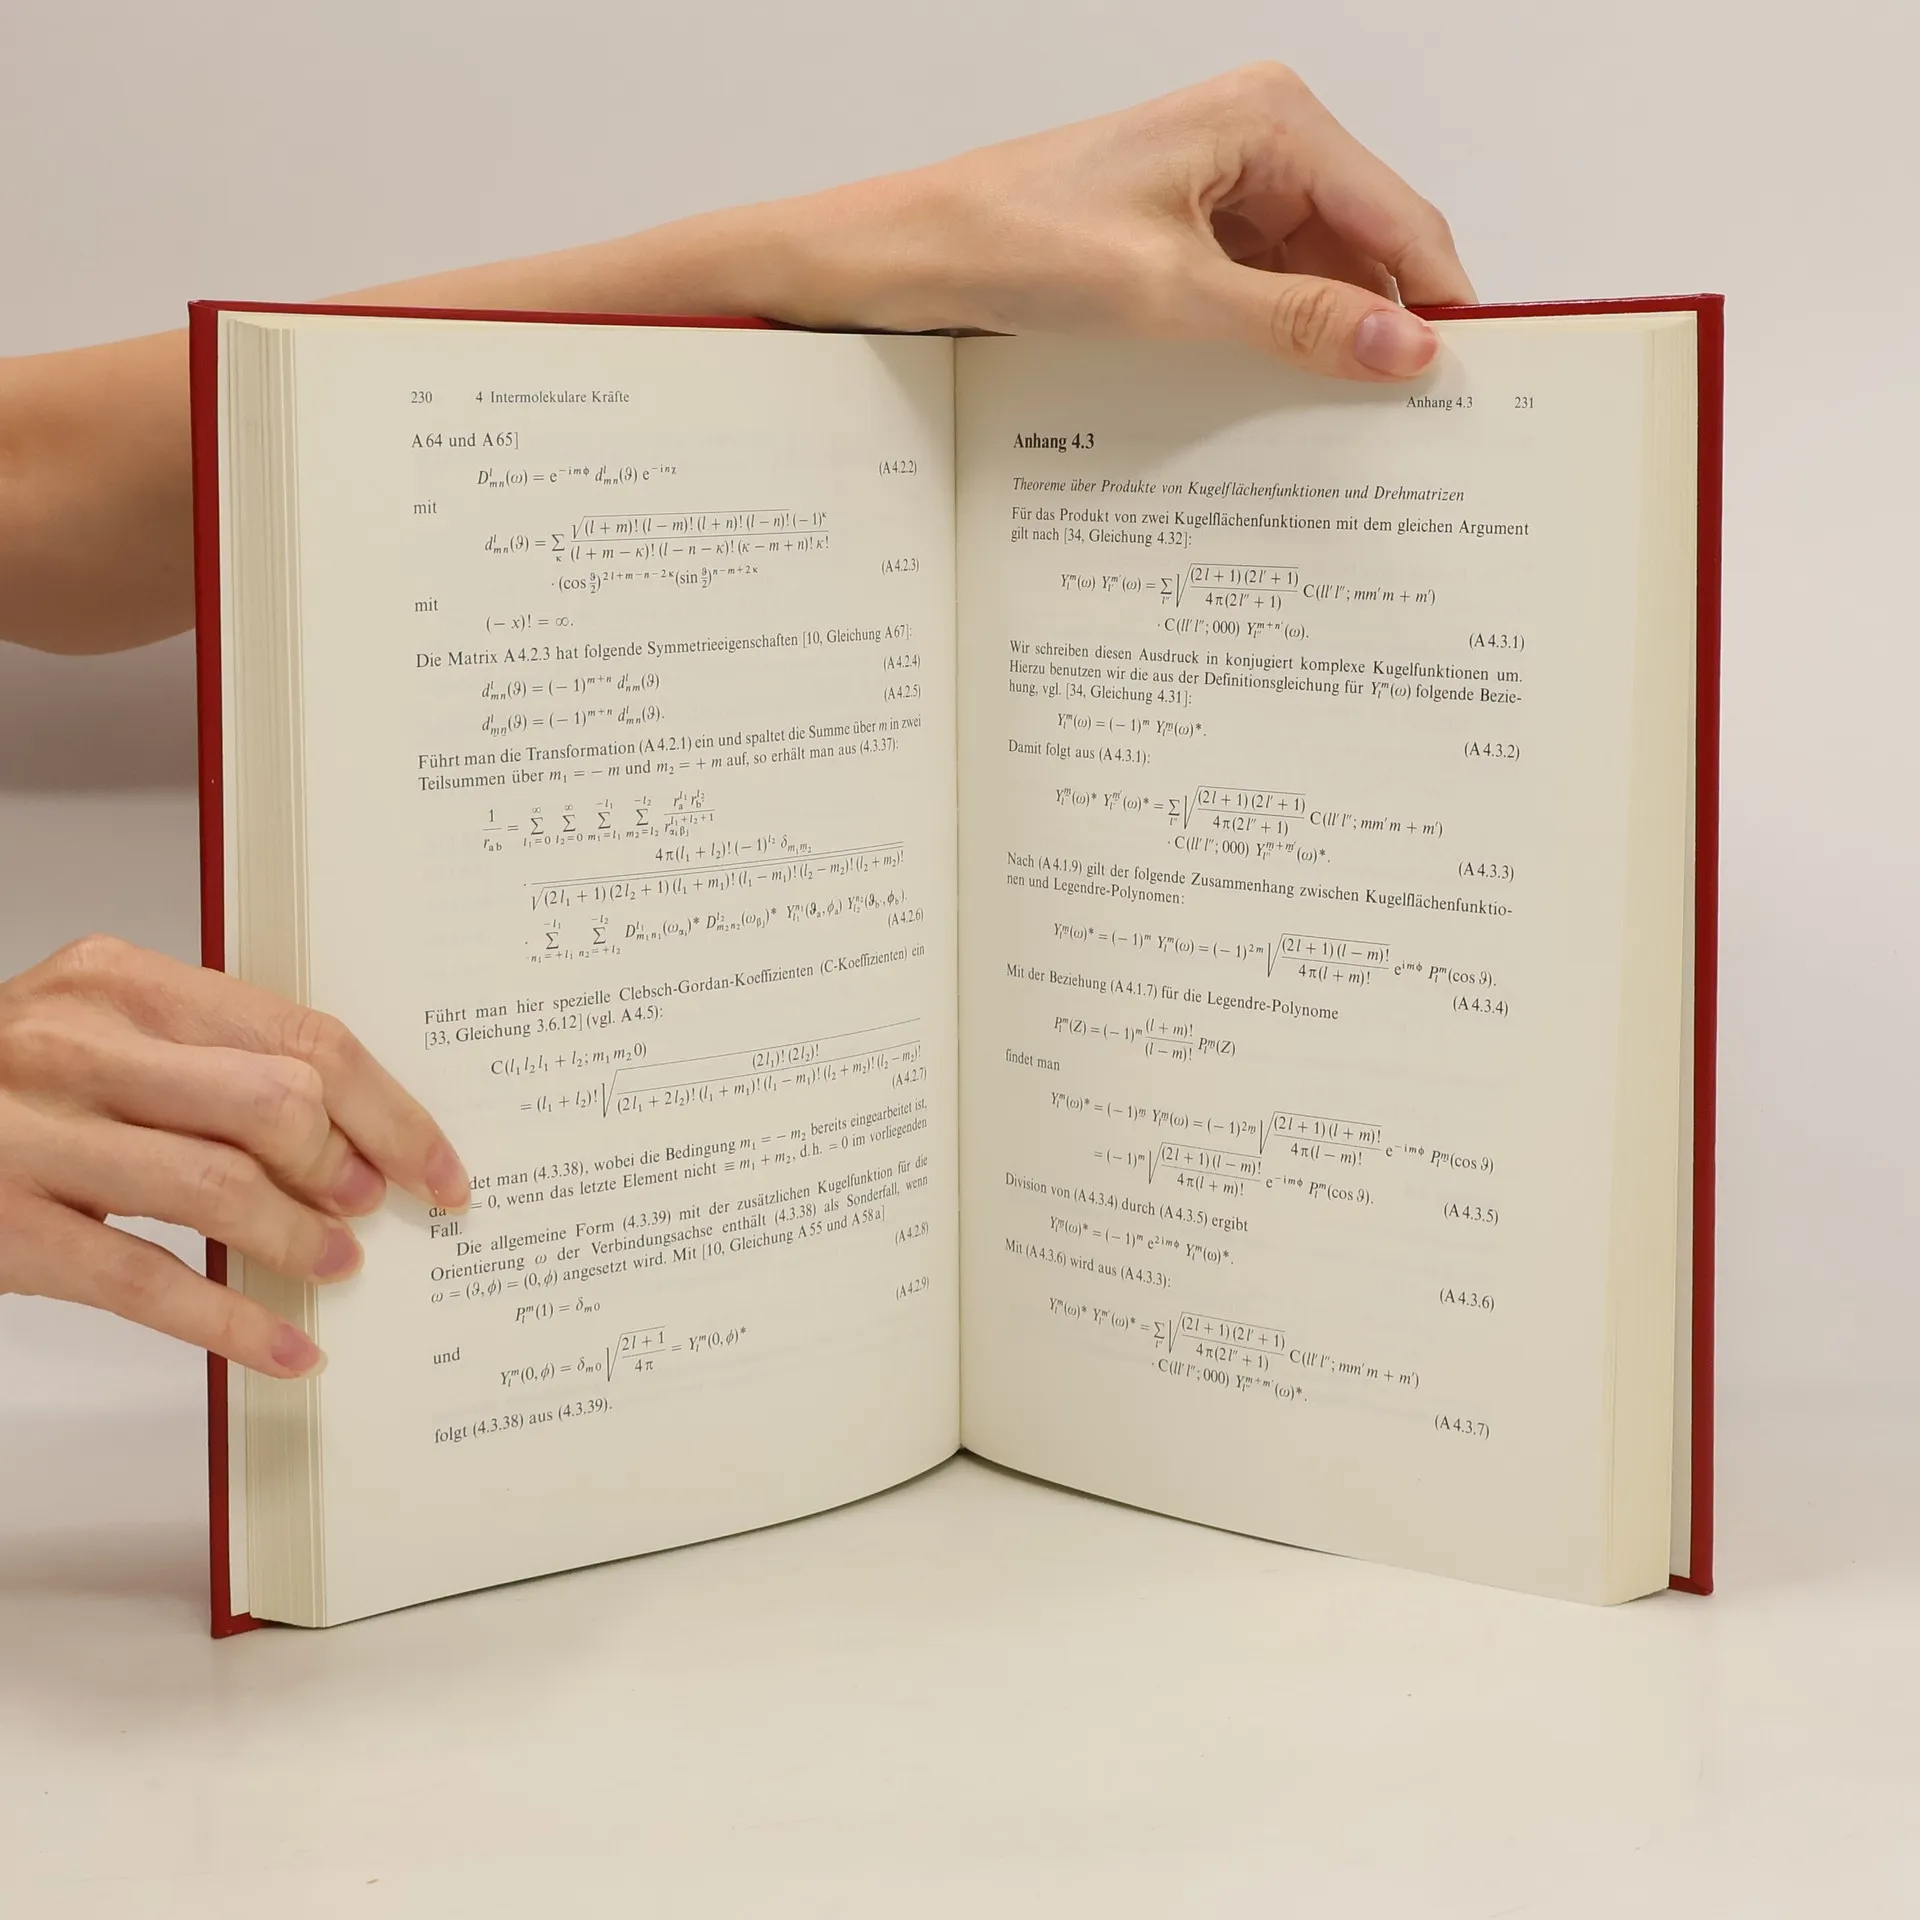 230 4 Intermolekulare Kräfte
A 64 und A 65]
Dˡₘₙ(ω) = e⁻ⁱᵐᶲ dˡₘₙ(ϑ) e⁻ⁱⁿᵡ (A 4.2.2)
mit
dˡₘₙ(ϑ) = Σ_κ √((l + m)! (l − m)! (l + n)! (l − n)!) (−1)^κ / ((l + m − κ)! (l − n − κ)! (κ − m + n)! κ!)
· (cos ϑ/2)^(2l+m−n−2κ) (sin ϑ/2)^(n−m+2κ) (A 4.2.3)
mit
(− x)! = ∞.
Die Matrix A 4.2.3 hat folgende Symmetrieeigenschaften [10, Gleichung A 67]:
dˡₘₙ(ϑ) = (− 1)^(m+n) dˡₙₘ(ϑ) (A 4.2.4)
dˡ_m̲n̲(ϑ) = (− 1)^(m+n) dˡₘₙ(ϑ). (A 4.2.5)
Führt man die Transformation (A 4.2.1) ein und spaltet die Summe über m in zwei
Teilsummen über m₁ = − m und m₂ = + m auf, so erhält man aus (4.3.37):
1/r_ab = Σ_(l₁=0)^∞ Σ_(l₂=0)^∞ Σ_(m₁=l₁)^(−l₁) Σ_(m₂=l₂)^(−l₂) r_a^(l₁) r_b^(l₂) / r_(αᵢβⱼ)^(l₁+l₂+1)
· 4π(l₁ + l₂)! (− 1)^(l₂) δ_(m₁m̲₂) / √((2l₁ + 1) (2l₂ + 1) (l₁ + m₁)! (l₁ − m₁)! (l₂ − m₂)! (l₂ + m₂)!)
· Σ_(n₁=+l₁)^(−l₁) Σ_(n₂=+l₂)^(−l₂) D^(l₁)_(m₁n₁)(ω_(αᵢ))* D^(l₂)_(m₂n₂)(ω_(βⱼ))* Y_(l₁)^(n₁)(ϑ_a, ϕ_a) Y_(l₂)^(n₂)(ϑ_b, ϕ_b).
(A 4.2.6)
Führt man hier spezielle Clebsch-Gordan-Koeffizienten (C-Koeffizienten) ein
[33, Gleichung 3.6.12] (vgl. A 4.5):
C(l₁ l₂ l₁ + l₂; m₁ m₂ 0)
= (l₁ + l₂)! √((2l₁)! (2l₂)! / ((2l₁ + 2l₂)! (l₁ + m₁)! (l₁ − m₁)! (l₂ + m₂)! (l₂ − m₂)!))
(A 4.2.7)
det man (4.3.38), wobei die Bedingung m₁ = − m₂ bereits eingearbeitet ist,
da = 0, wenn das letzte Element nicht ≡ m₁ + m₂, d. h. = 0 im vorliegenden
Fall.
Die allgemeine Form (4.3.39) mit der zusätzlichen Kugelfunktion für die
Orientierung ω der Verbindungsachse enthält (4.3.38) als Sonderfall, wenn
ω = (ϑ, ϕ) = (0, ϕ) angesetzt wird. Mit [10, Gleichung A 55 und A 58 a]
P_l^m(1) = δ_(m0) (A 4.2.8)
und
Y_l^m(0, ϕ) = δ_(m0) √((2l + 1)/4π) = Y_l^m(0, ϕ)* (A 4.2.9)
folgt (4.3.38) aus (4.3.39).
Anhang 4.3 231
Anhang 4.3
Theoreme über Produkte von Kugelflächenfunktionen und Drehmatrizen
Für das Produkt von zwei Kugelflächenfunktionen mit dem gleichen Argument
gilt nach [34, Gleichung 4.32]:
Y_l^m(ω) Y_l'^m'(ω) = Σ_l'' √((2l + 1) (2l' + 1) / (4π(2l'' + 1))) C(ll' l''; mm' m + m')
· C(ll' l''; 000) Y_l''^(m+n')(ω).
(A 4.3.1)
Wir schreiben diesen Ausdruck in konjugiert komplexe Kugelfunktionen um.
Hierzu benutzen wir die aus der Definitionsgleichung für Y_l^m(ω) folgende Bezie-
hung, vgl. [34, Gleichung 4.31]:
Y_l^m(ω) = (− 1)^m Y_l^m̲(ω)*.
(A 4.3.2)
Damit folgt aus (A 4.3.1):
Y_l^m̲(ω)* Y_l'^m̲'(ω)* = Σ_l'' √((2l + 1) (2l' + 1) / (4π(2l'' + 1))) C(ll' l''; mm' m + m')
· C(ll' l''; 000) Y_l''^(m̲+m̲')(ω)*.
(A 4.3.3)
Nach (A 4.1.9) gilt der folgende Zusammenhang zwischen Kugelflächenfunktio-
nen und Legendre-Polynomen:
Y_l^m̲(ω)* = (− 1)^m Y_l^m(ω) = (− 1)^(2m) √((2l + 1) (l − m)! / (4π(l + m)!)) e^(imϕ) P_l^m(cos ϑ).
(A 4.3.4)
Mit der Beziehung (A 4.1.7) für die Legendre-Polynome
P_l^m(Z) = (− 1)^m (l + m)!/(l − m)! P_l^m̲(Z)
findet man
Y_l^m(ω)* = (− 1)^m̲ Y_l^m̲(ω) = (− 1)^(2m̲) √((2l + 1) (l + m)! / (4π(l − m)!)) e^(−imϕ) P_l^m̲(cos ϑ)
= (− 1)^m √((2l + 1) (l − m)! / (4π(l + m)!)) e^(−imϕ) P_l^m(cos ϑ).
(A 4.3.5)
Division von (A 4.3.4) durch (A 4.3.5) ergibt
Y_l^m̲(ω)* = (− 1)^m e^(2imϕ) Y_l^m(ω)*.
(A 4.3.6)
Mit (A 4.3.6) wird aus (A 4.3.3):
Y_l^m(ω)* Y_l'^m'(ω)* = Σ_l'' √((2l + 1) (2l' + 1) / (4π(2l'' + 1))) C(ll' l''; mm' m + m')
· C(ll' l''; 000) Y_l''^(m+m')(ω)*.
(A 4.3.7)